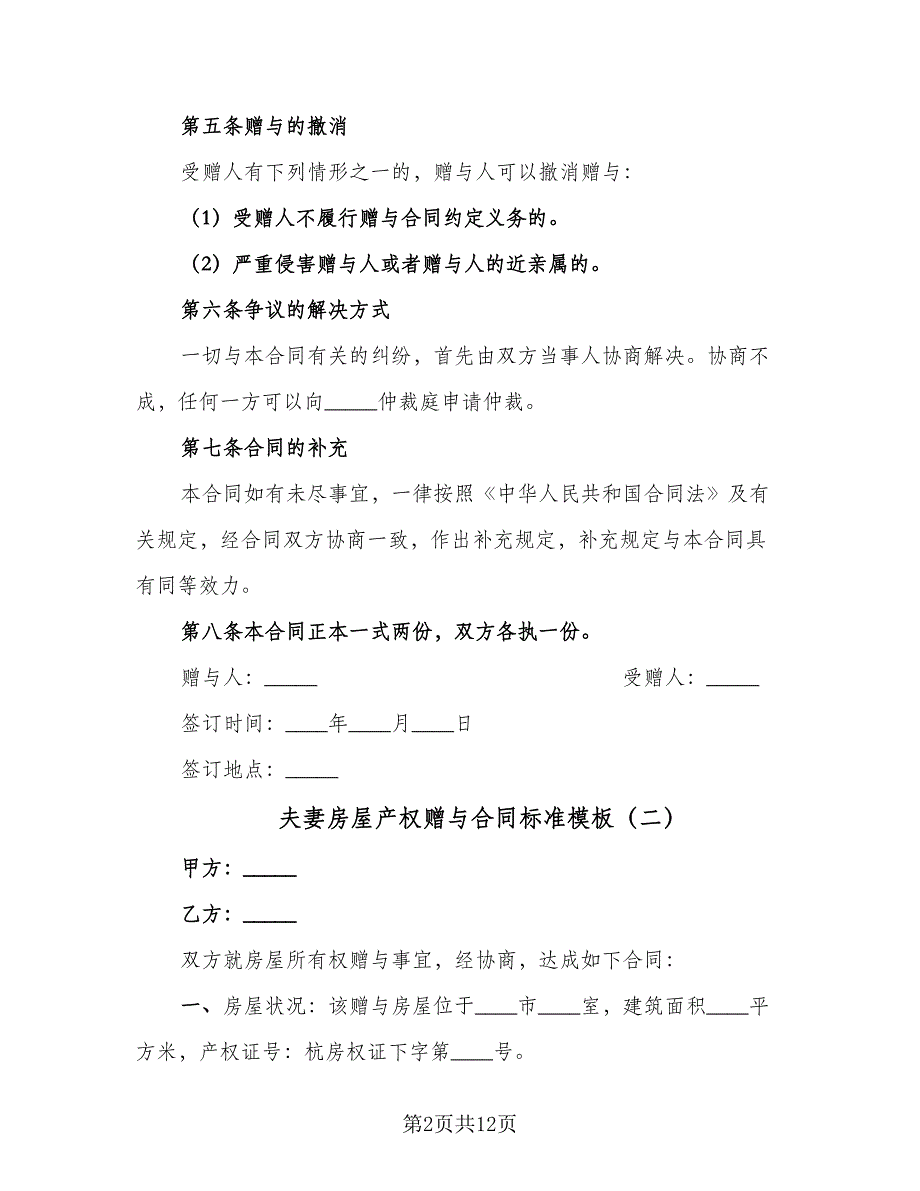 第五条赠与的撤消
受赠人有下列情形之一的，赠与人可以撤消赠与：
（1）受赠人不履行赠与合同约定义务的。
（2）严重侵害赠与人或者赠与人的近亲属的。
第六条争议的解决方式
一切与本合同有关的纠纷，首先由双方当事人协商解决。协商不
成，任何一方可以向_____仲裁庭申请仲裁。
第七条合同的补充
本合同如有未尽事宜，一律按照《中华人民共和国合同法》及有
关规定，经合同双方协商一致，作出补充规定，补充规定与本合同具
有同等效力。
第八条本合同正本一式两份，双方各执一份。
赠与人：_____ 受赠人：_____
签订时间：____年____月____日
签订地点：_____
夫妻房屋产权赠与合同标准模板（二）
甲方：_____
乙方：_____
双方就房屋所有权赠与事宜，经协商，达成如下合同：
一、房屋状况：该赠与房屋位于____市____室，建筑面积____平
方米，产权证号：杭房权证下字第____号。
第2页共12页